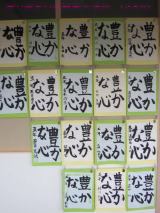 豊か
な心
豊か
な心
豊か
な心
豊か
な心
豊か
な心
豊か
な心
豊か
な心
豊か
な心
豊か
な心
豊か
な心
豊か
な心
豊か
な心
豊か
な心
豊か
な心
豊か
な心
豊か
な心
豊か
な心